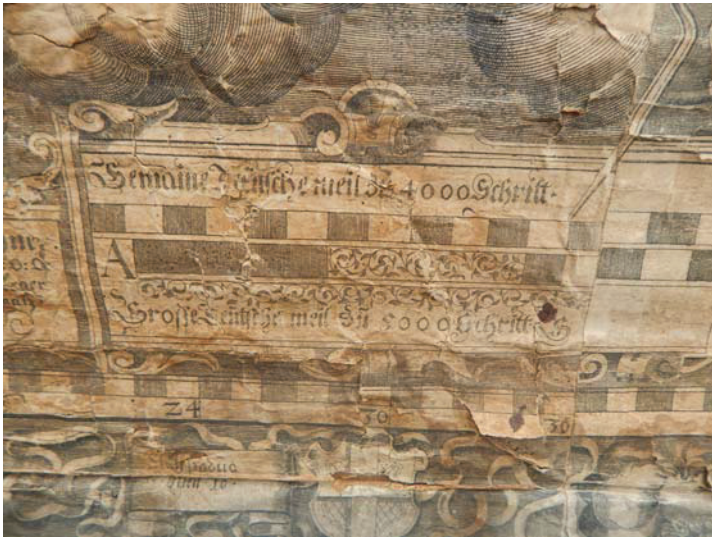 Gemaine Teütsche meil zu 4000 Schritt.
A
Grosse Teütsche meil zu 5000 Schritt.
24
30
36